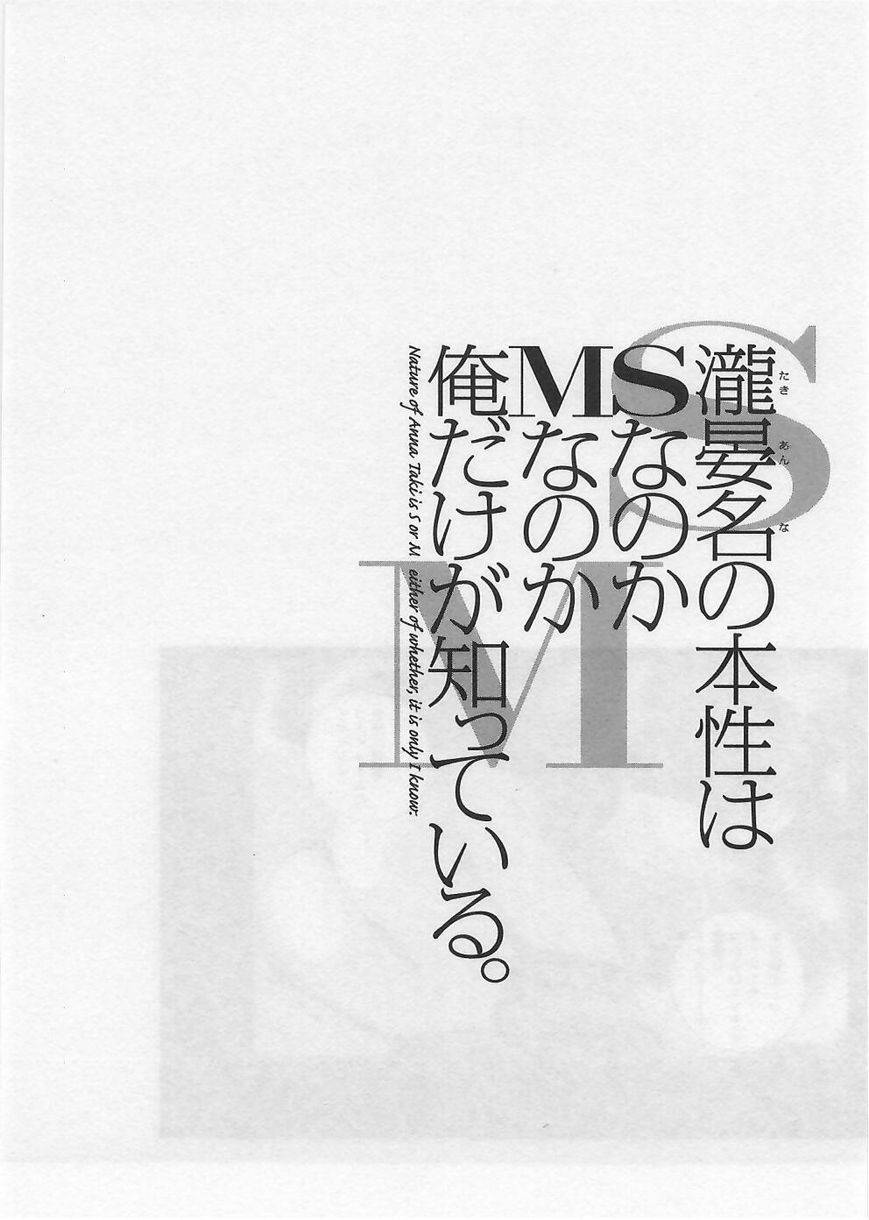 瀧晏名の本性は
たき あん な
Sなのか
Mなのか
俺だけが知っている。
Nature of Anna Taki is S or M either of whether, it is only I know.
S
M